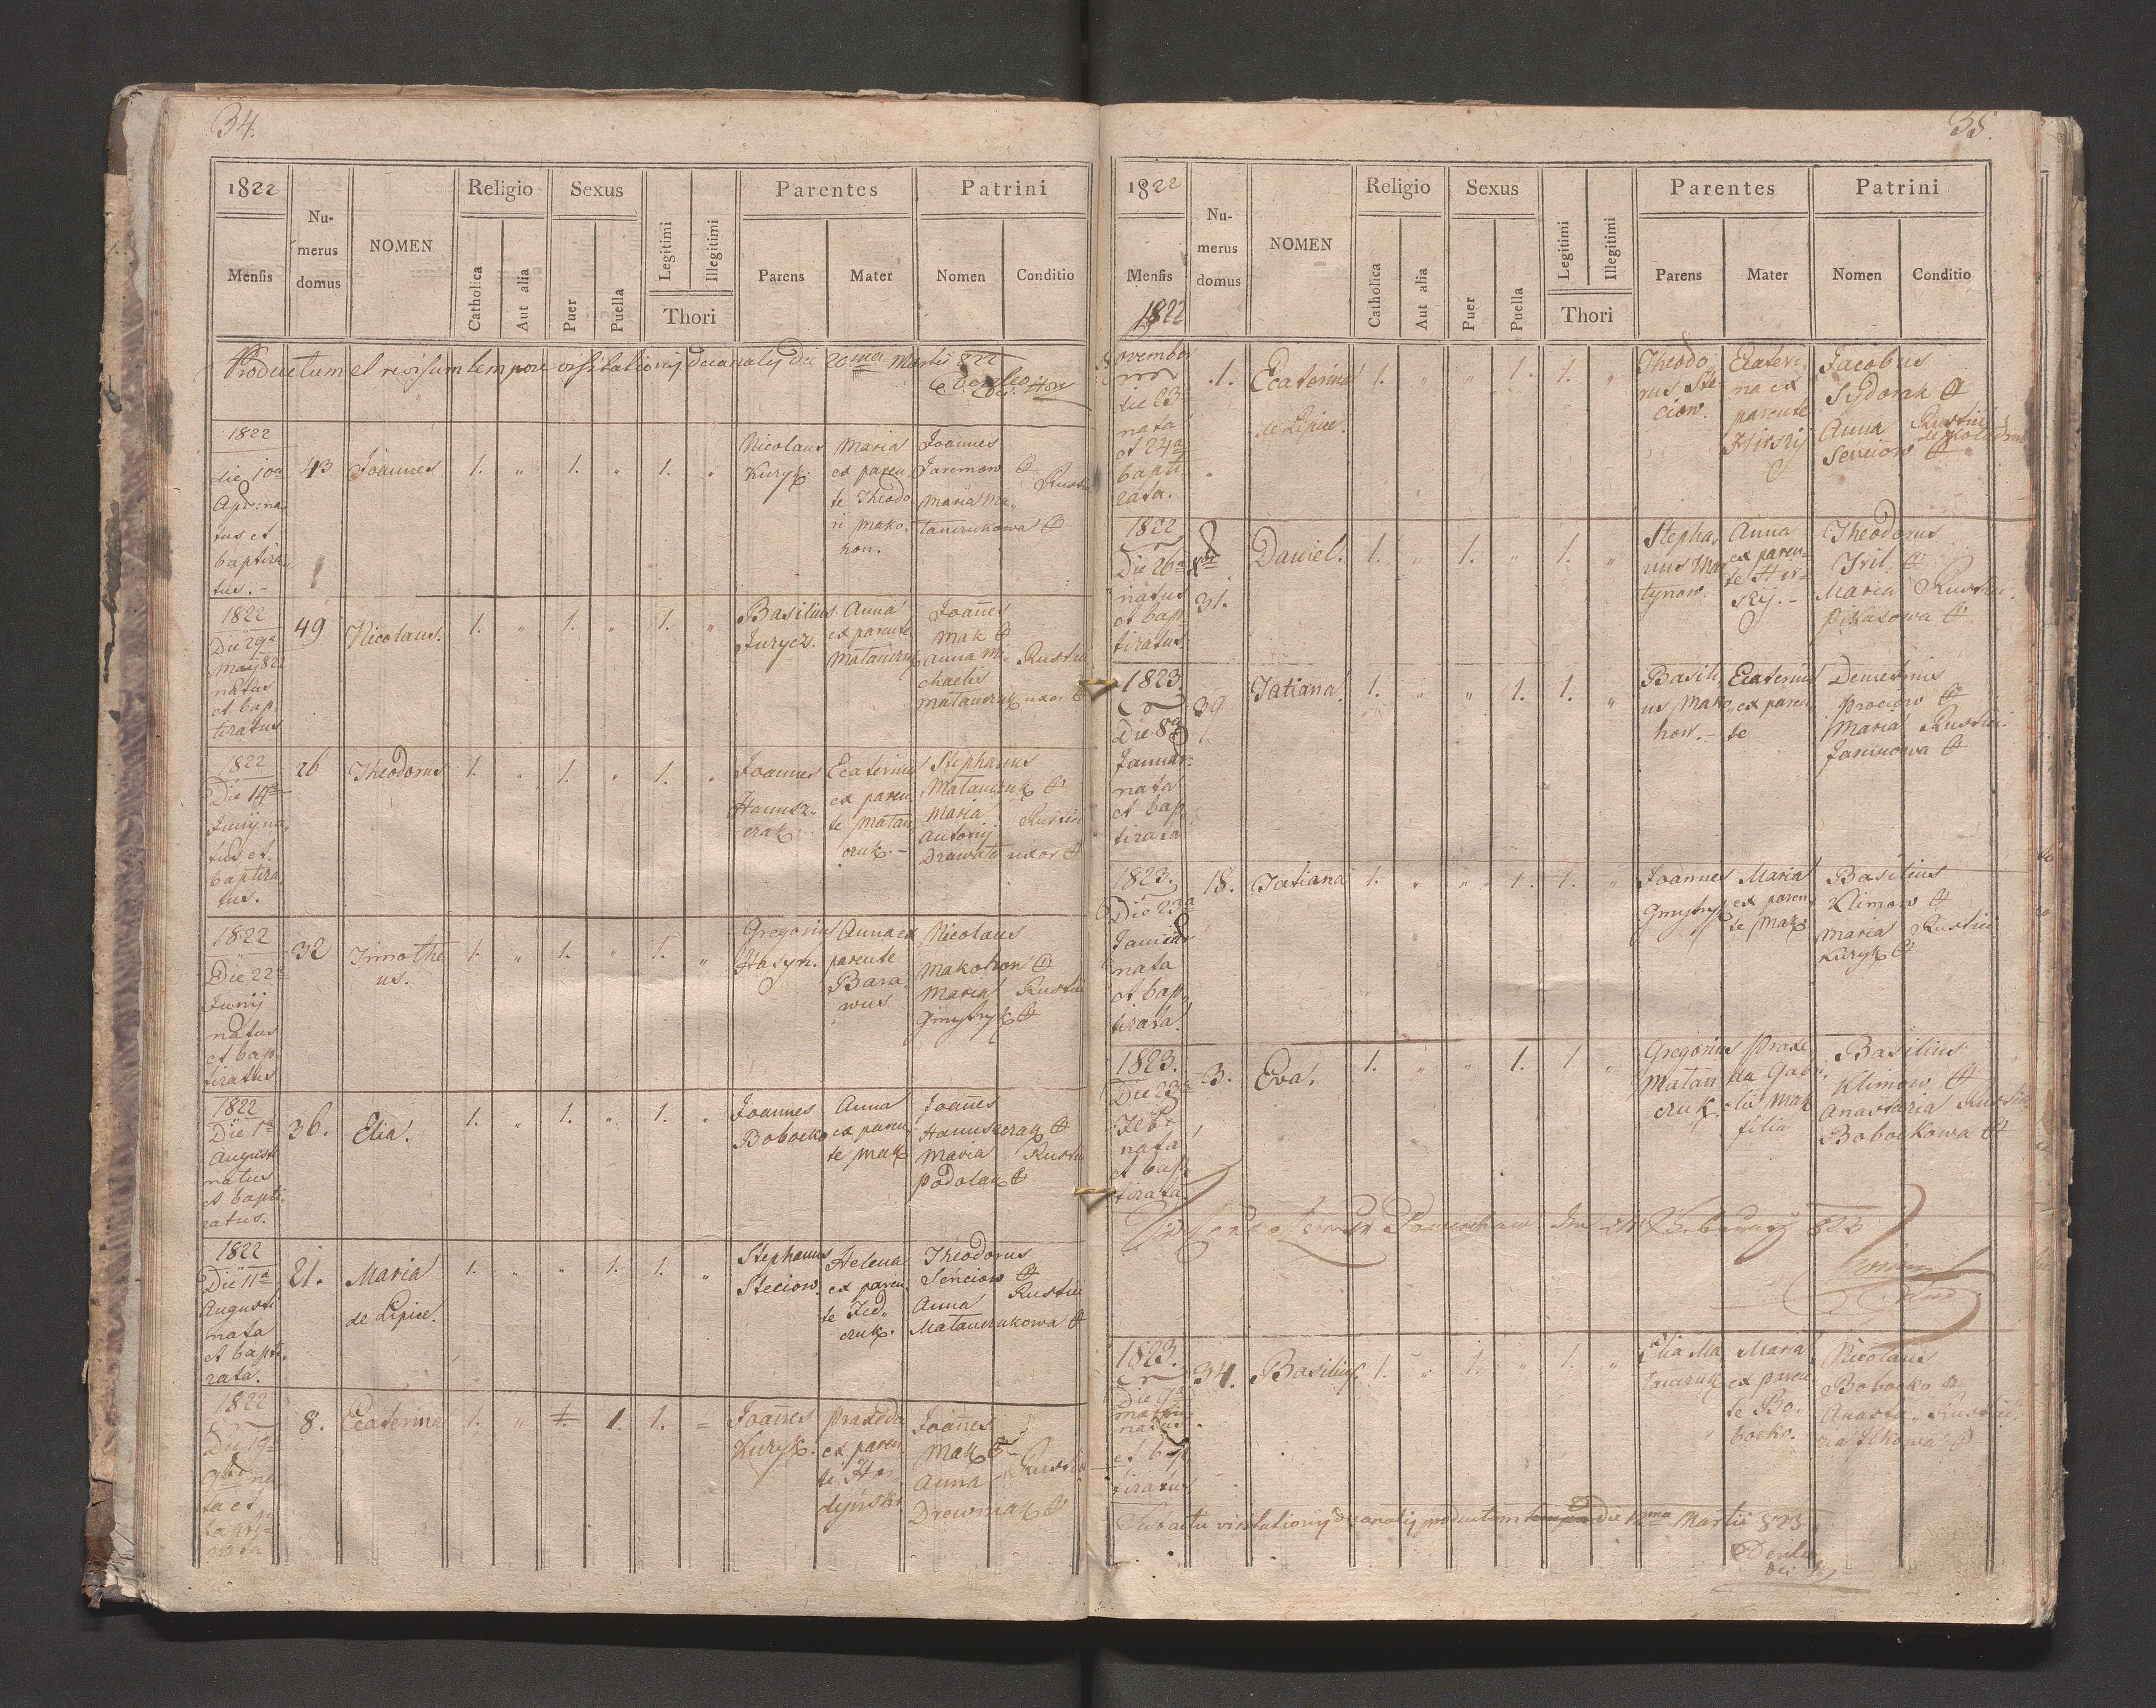 34.
1822
Mensis
Nu-
merus
domus
NOMEN
Religio
Catholica
Aut alia
Sexus
Puer
Puella
Legitimi
Illegitimi
Thori
Parentes
Parens
Mater
Patrini
Nomen
Conditio
Productum et revisum tempore visitationis decanalis die 20ma Martii 822
1822
die 10a
Apr: na
tus et
baptiza
tus.
43
Joannes
1. " 1. " 1. "
Nicolaus
Kuryk
Maria
ex paren
te Theodo
ri Mako„
hon.
Joannes
Jaremow
Maria Ma„
tanczukowa
Rustici
1822
Die 29a
May 822
natus
et bap
tizatus
49
Nicolaus.
1. " 1. " 1. "
Basilius
Jurycz.
Anna
ex parente
Matanczuk
Joannes
Mak
Anna Mi„
chaelis
Matanczuk uxor
Rustici
1822
Die 14a
Junij na„
tus et
baptiza
tus.
26
Theodorus
1. " 1. " 1. "
Joannes
Hanusz„
czak
Ecaterina
ex paren
te Matan
czuk.
Stephanus
Matanczuk
Maria
Antonij
Drawata uxor
Rustici
1822
Die 22a
Junij
natus
et bap
tizatus
32
Timothe
us.
1. " 1. " 1. "
Gregorius
Hasyn.
Anna ex
parente
Bara
wus
Nicolaus
Makohon
Maria
Gmytryk
Rustici
1822
Die 1a
Augusti
natus
et bapti
zatus.
36.
Elia.
1. " 1. " 1. "
Joannes
Bobocko
Anna
ex paren
te Mak
Joannes
Hanuszczak
Maria
Podolak
Rustici
1822
Die 11a
Augusti
nata
et bapti.
zata.
21.
Maria
de Lipice.
1. " " 1. 1. "
Stephanus
Steciow.
Helena
ex paren
te Fed„
czuk.
Theodorus
Senciow
Anna
Matanczukowa
Rustici
1822
Die 19a
9br na
ta et
bapti=
zata
8.
Ecaterina
1. " 1. 1. 1. =
Joannes
Kuryk.
Praxeda
ex paren
te Hor
dynski
Joannes
Mak
Anna
Drewniak
Rustici
35.
1822
Mensis
Nu-
merus
domus
NOMEN
Religio
Catholica
Aut alia
Sexus
Puer
Puella
Legitimi
Illegitimi
Thori
Parentes
Parens
Mater
Patrini
Nomen
Conditio
1822
November
die 23
nata
et 24a
bapti
zata.
1.
Ecaterina
de Lipice.
1. " " 1. 1. "
Theodo„
rus Ste
ciow.
Ecateri„
na ex
parente
Hirskij
Jacobus
Sydorak
Anna
Senciow
Rustici
1822
Die 26a
natus
et bap
tizatus
31.
Daniel.
1. " 1. " 1. "
Stepha„
nus Mar
tynow.
Anna
ex paren„
te Hir=
skij.
Theodorus
Ivil
Maria
Pikasowa
Rustici.
1823.
Die 8a
Januar:
nata
et bap
tizata
39
Tatiana
1. " " 1. 1. "
Basili
us Mako„
hon.
Ecaterina
ex paren
te
Demetrius
Prociow
Maria
Janinowa
Rustici.
1823.
Die 23a
Januar
nata
et bap„
tizata
18.
Tatiana
1. " " 1. 1. "
Joannes
Gmytryk
Maria
ex paren
te Mak
Basilius
Klimow
Maria
Kuryk
Rustici
1823.
Die 23a
Feb.
nata
et bap
tizata.
3.
Eva.
1. " " 1. 1 "
Gregorius
Matan
czuk.
Praxe
da Gabri
elis Mak
filia
Basilius
Klimow
Anastazia
Bobockowa
Rustici
1823.
Die 9a
Martii
natus
et bap
tizatus
34.
Basilius.
1. " 1. " 1. "
Elia Ma
tanczuk
Maria
ex paren
te Bo„
bocko.
Nicolaus
Bobocko
Anasta„
zia Ilkowa
Rustici.
Sub actu visitationis decanalis productum die 12ma Martii 823